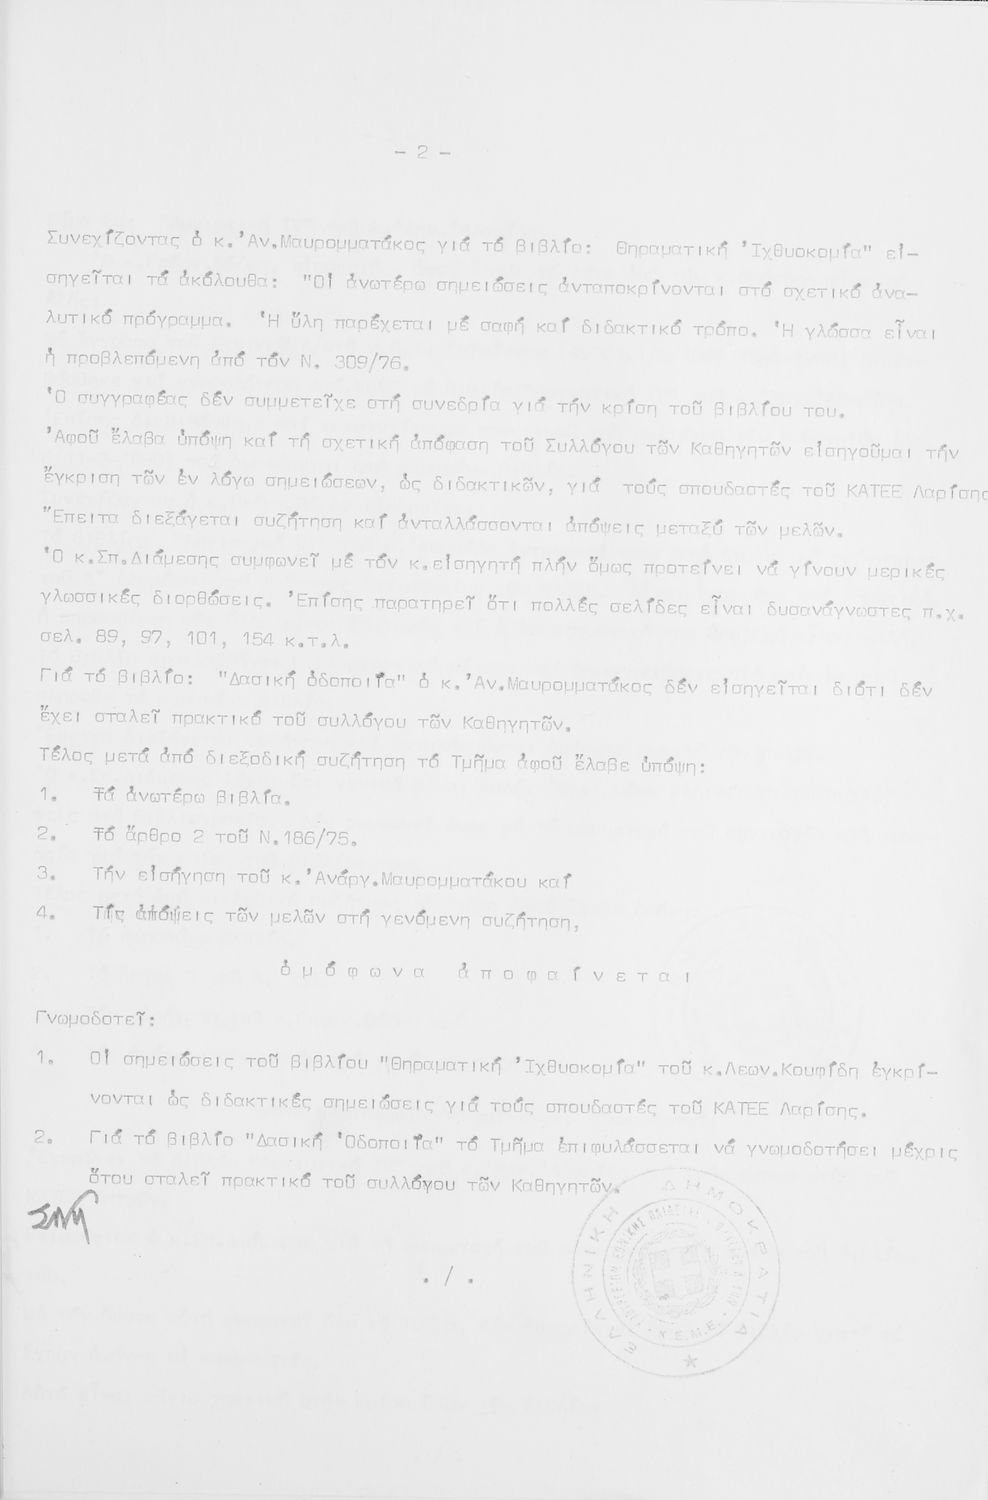 - 2 -
Συνεχίζοντας ὁ κ.Ἀν.Μαυρομματάκος γιά τό βιβλίο: Θηραματική Ἰχθυοκομία" εἰ-
σηγεῖται τά ἀκόλουθα: "Οἱ ἀνωτέρω σημειώσεις ἀνταποκρίνονται στό σχετικό ἀνα-
λυτικό πρόγραμμα. Ἡ ὕλη παρέχεται μέ σαφή καί διδακτικό τρόπο. Ἡ γλώσσα εἶναι
ἡ προβλεπόμενη ἀπό τόν Ν. 309/76.
Ὁ συγγραφέας δέν συμμετεῖχε στή συνεδρία γιά τήν κρίση τοῦ βιβλίου του.
Ἀφοῦ ἔλαβα ὑπόψη καί τή σχετική ἀπόφαση τοῦ Συλλόγου τῶν Καθηγητῶν εἰσηγοῦμαι τήν
ἔγκριση τῶν ἐν λόγω σημειώσεων, ὡς διδακτικῶν, γιά τούς σπουδαστές τοῦ ΚΑΤΕΕ Λαρίσης
Ἔπειτα διεξάγεται συζήτηση καί ἀνταλλάσσονται ἀπόψεις μεταξύ τῶν μελῶν.
Ὁ κ.Σπ.Διάμεσης συμφωνεῖ μέ τόν κ.εἰσηγητή πλήν ὅμως προτείνει νά γίνουν μερικές
γλωσσικές διορθώσεις. Ἐπίσης παρατηρεῖ ὅτι πολλές σελίδες εἶναι δυσανάγνωστες π.χ.
σελ. 89, 97, 101, 154 κ.τ.λ.
Γιά τό βιβλίο: "Δασική ὁδοποιΐα" ὁ κ.Ἀν.Μαυρομματάκος δέν εἰσηγεῖται διότι δέν
ἔχει σταλεῖ πρακτικό τοῦ συλλόγου τῶν Καθηγητῶν.
Τέλος μετά ἀπό διεξοδική συζήτηση τό Τμῆμα ἀφοῦ ἔλαβε ὑπόψη:
1. Τά ἀνωτέρω βιβλία.
2. Τό ἄρθρο 2 τοῦ Ν.186/75.
3. Τήν εἰσήγηση τοῦ κ.Ἀνάργ.Μαυρομματάκου καί
4. Τίς ἀπόψεις τῶν μελῶν στή γενόμενη συζήτηση,
ὁ μ ό φ ω ν α ἀ π ο φ α ί ν ε τ α ι
Γνωμοδοτεῖ:
1. Οἱ σημειώσεις τοῦ βιβλίου "Θηραματική Ἰχθυοκομία" τοῦ κ.Λεων.Κουφίδη ἐγκρί-
νονται ὡς διδακτικές σημειώσεις γιά τούς σπουδαστές τοῦ ΚΑΤΕΕ Λαρίσης.
2. Γιά τό βιβλίο "Δασική Ὁδοποιΐα" τό Τμῆμα ἐπιφυλάσσεται νά γνωμοδοτήσει μέχρις
ὅτου σταλεῖ πρακτικό τοῦ συλλόγου τῶν Καθηγητῶν.
ΕΛΛΗΝΙΚΗ ΔΗΜΟΚΡΑΤΙΑ
Κ.Ε.Μ.Ε.
. / .